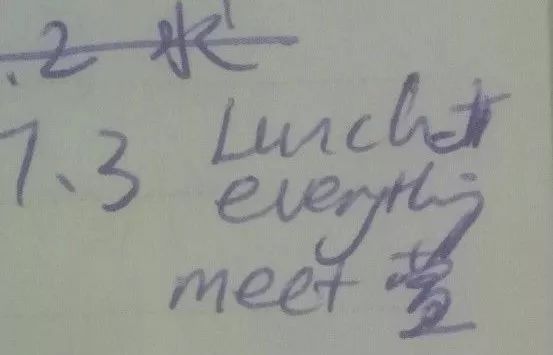 .2 水
7.3 Lunch
everything
meet